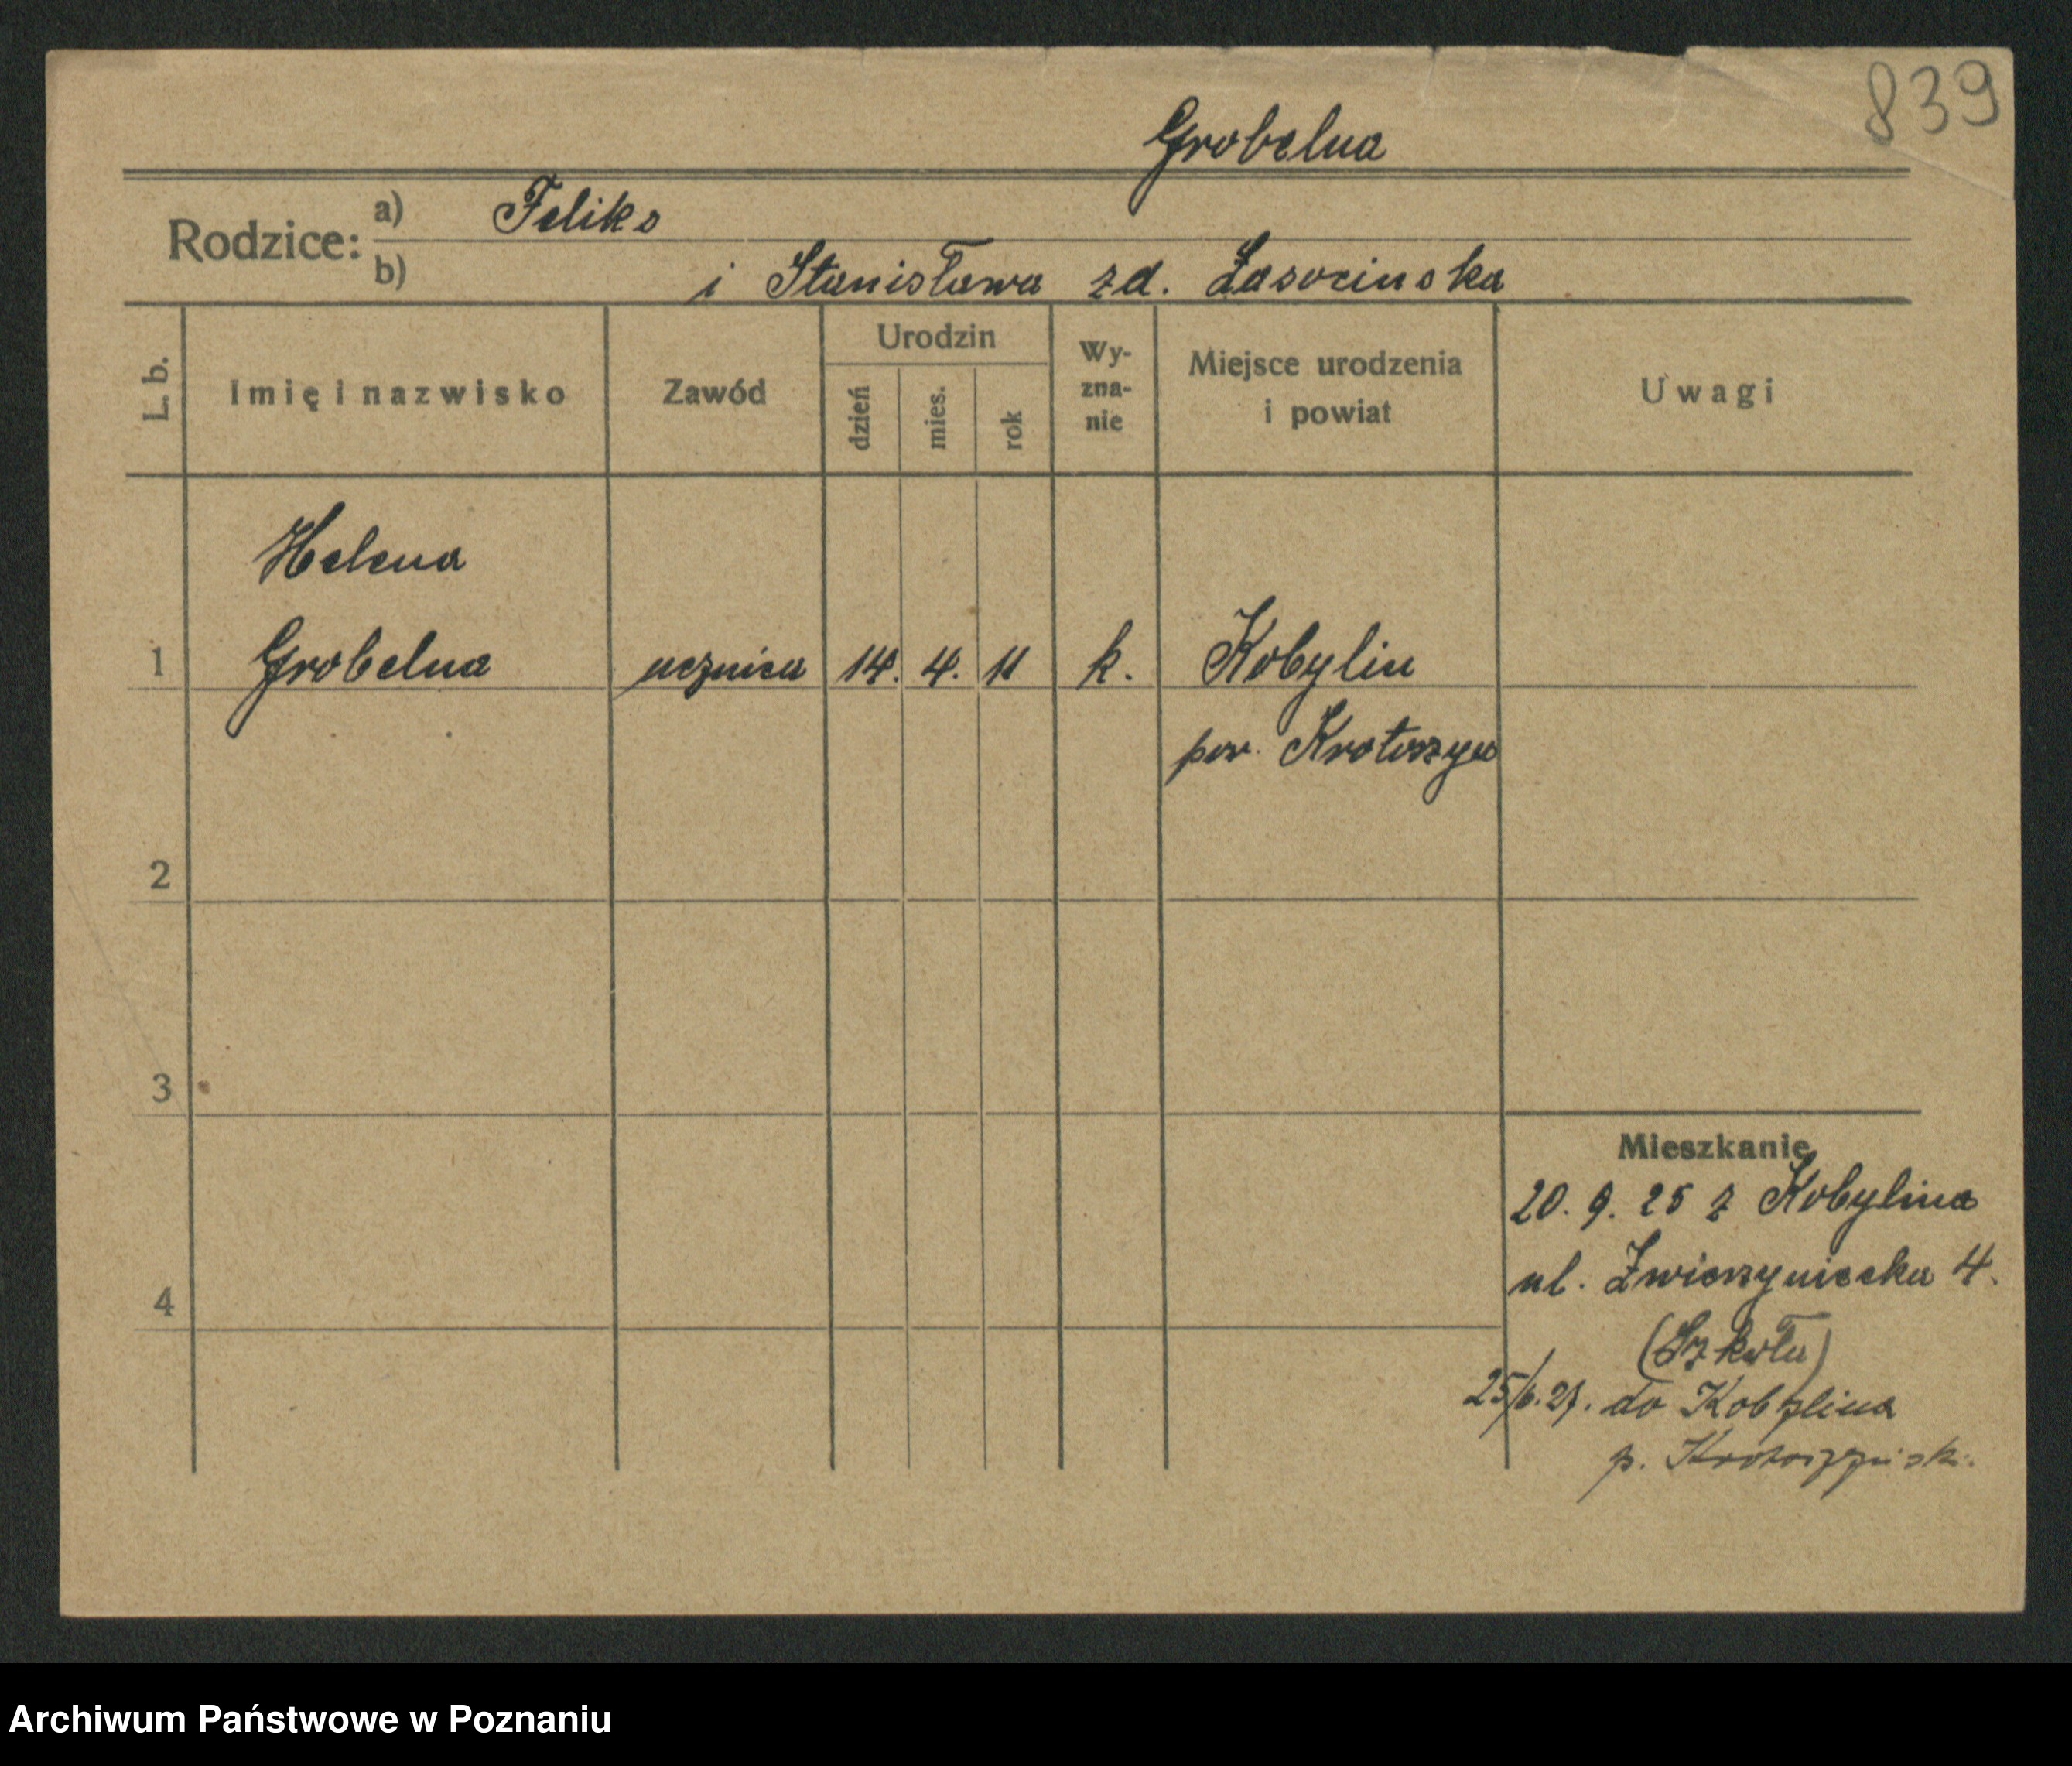 839
Grobelna
Rodzice: a) Feliks
b) i Stanisława zd. Zasocinska
L. b.
Imię i nazwisko
Zawód
Urodzin
dzień
mies.
rok
Wy-
zna-
nie
Miejsce urodzenia
i powiat
Uwagi
Helena
1 Grobelna ucznica 14. 4. 11 k. Kobylin
pow. Krotoszyn
2
3
Mieszkanie
20. 9. 25 z Kobylina
ul. Zwierzyniecka 4.
4
(Szkoła)
25/6.27. do Kobylina
p. Krotoszyński.
Archiwum Państwowe w Poznaniu